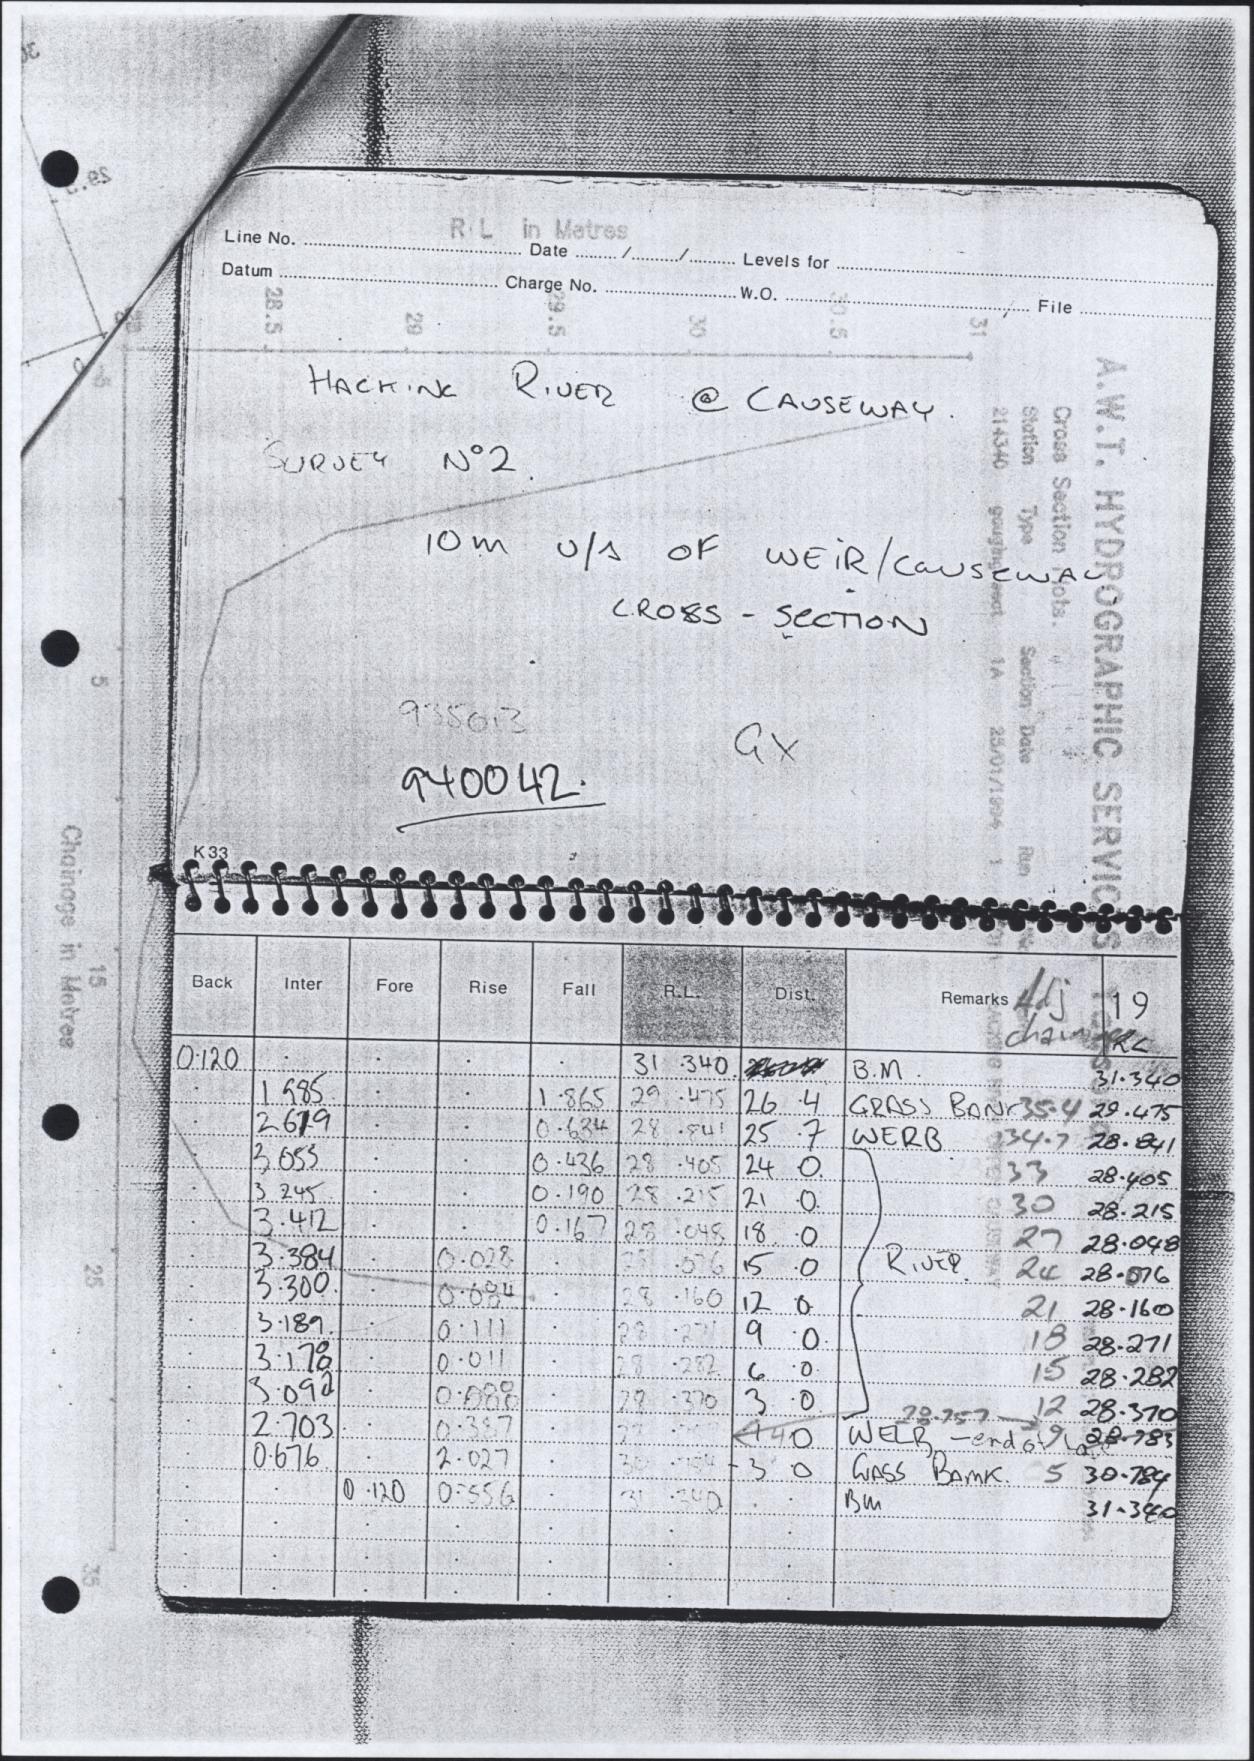 R L in Metres
Line No. Date / / Levels for
Datum Charge No. W.O. File
28.5 29 29.5 30 30.5 31
HACKING RIVER @ CAUSEWAY.
SURVEY Nº2.
10m U/S OF WEIR/CAUSEWAY
CROSS - SECTION
935013
940042.
GX
K33
A.W.T. HYDROGRAPHIC SERVICES
Cross Section Plots.
Station Type Section Date Run
214340 1A 25/01/1994 1
Chainage in Metres
5
15
25
35
Back Inter Fore Rise Fall R.L. Dist. Remarks Adj chainage 19 RL
0.120 31.340 B.M. 31.340
1.985 1.865 29.475 26.4 GRASS BANK 35.4 29.475
2.619 0.634 28.841 25.7 WERB 34.7 28.841
3.055 0.436 28.405 24.0 33 28.405
3.245 0.190 28.215 21.0 30 28.215
3.412 0.167 28.048 18.0 27 28.048
3.384 0.028 28.076 15.0 RIVER 24 28.076
3.300 0.084 28.160 12.0 21 28.160
3.189 0.111 28.271 9.0 18 28.271
3.178 0.011 28.282 6.0 15 28.282
3.092 0.088 28.370 3.0 12 28.370
28.757
2.703 0.387 0 WERB - end of 9 28.783
0.676 2.027 30.784 -3 0 GASS BAMK. 5 30.784
0.120 0.556 31.340 BM 31.340